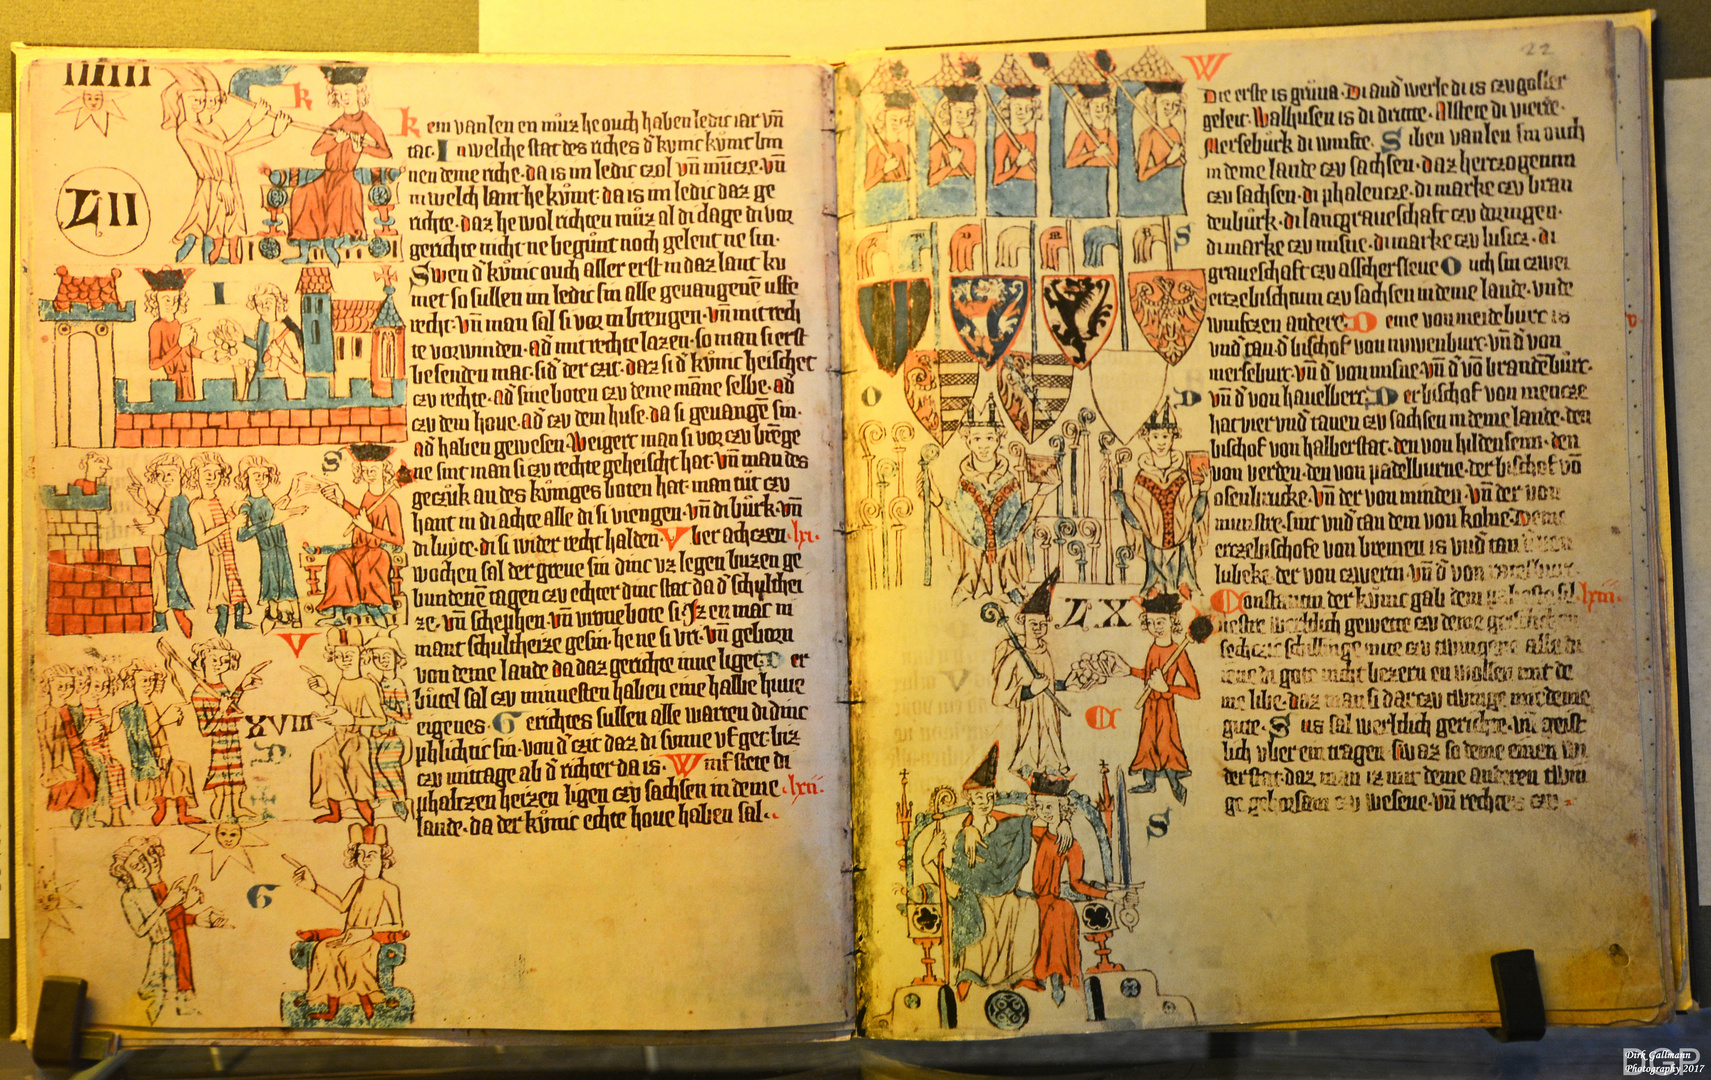 LII
k
I
S
V
XVIII
G
kein vanlen en můz he ouch haben ledic iar vñ
tac. In welche stat des riches d̓ kvnic kvmt bin
nen deme riche. da is im ledic czol vñ můncze. vñ
in welch lant he kůmt. da is im ledic daz ge
richte. daz he wol richten můz al di clage di vor
gerichte nicht ne begůnt noch gelent ne sin.
Swen d̓ kvnic ouch aller erst in daz lant ku
met so sullen im ledic sin alle geuangene uffe
recht. vñ man sal si vor in brengen. vñ mit rech
te vorwinden. ad̓ mit rechte lazen. so man si erst
besenden mac. sid̓ der czit. daz si d̓ kvnic heischet
czv rechte. ad̓ sine boten czv deme māne selbe. ad̓
czv dem houe. ad̓ czv dem huse. da si geuangē sin.
ad̓ haben gewesen. Weigert man si vor czv brēge
ne sint man si czv rechte geheischt hat. vñ man des
geczük an des kvniges boten hat. man tůt czv
hant in di achte alle di si viengen. vñ di bůrk. vñ
di luyte. di si wider recht halden. Vber achczen .lxi.
wochen sal der greue sin dinc vz legen buzen ge
bundenē tagen czv echter dinc stat da d̓ schulthei
ze. vñ schephen. vñ vronebote si. Iz en mac ni
mant schultheize gesin. he ne si vri. vñ geborn
von deme lande da daz gerichte inne liget. Der
bůtel sal czv minnesten haben eine halbe huue
eigenes. Gerichtes sullen alle warten di dinc
phlichtic sin. von d̓ czit daz di sunne vf get. biz
czv mittage ab d̓ richter da is. Winf stete di .lxii.
phalczen heizen ligen czv sachsen in deme
lande. da der kvnic echte houe haben sal.
22
W
S
O
D
LX
C
S
Die erste is grůna. Di and̓ werle di is czv gosler
geleit. Walhusen is di dritte. Alstete di vierte.
Merseburk di vunfte. Siben vanlen sin ouch
in deme lande czv sachsen. daz herczogetum
czv sachsen. di phalencze. di marke czv bran
denbürk. di lantgraueschaft czv duringen.
di marke czv misne. di marke czv lusicz. di
graueschaft czv asschersleue. Ouch sin czwei
erczebischtum czv sachsen in deme lande. vnde
vunfczen andere. Deme von meideburc is
vnd̓tan. d̓ bischof von nuwenburc. vñ d̓ von
merseburc. vñ d̓ von misne. vñ d̓ vō brandēburc.
vñ d̓ von hauelberc. Der bischof von mencze
hat vier vnd̓tanen czv sachsen in deme lande. den
bischof von halberstat. den von hildensenn. den
von verden. den von padelburne. der bischof vō
osenbrucke. vñ der von minden. vñ der von
munstre. sint vnd̓tan dem von kolne. Deme
erczebischofe von bremen is vnd̓tan
lubeke. der von czwerin. vñ d̓ von
Constantin der kvnic gab dem .lxiii.
uestre werltlich gewette czv deme geistlichen
sechczic schillinge mite czv twingene alle di
iene di gote nicht bezzern en wollen mit de
me libe. daz man si darczv twinge mit deme
gute. Sus sal werltlich gerichte. vñ geist
lich vber ein tragen. swaz so deme einen wi
derstat. daz man iz mit deme anderen twin
ge gehorsam czv wesene. vñ rechtes czv
DGP
Dirk Gallmann
Photography 2017